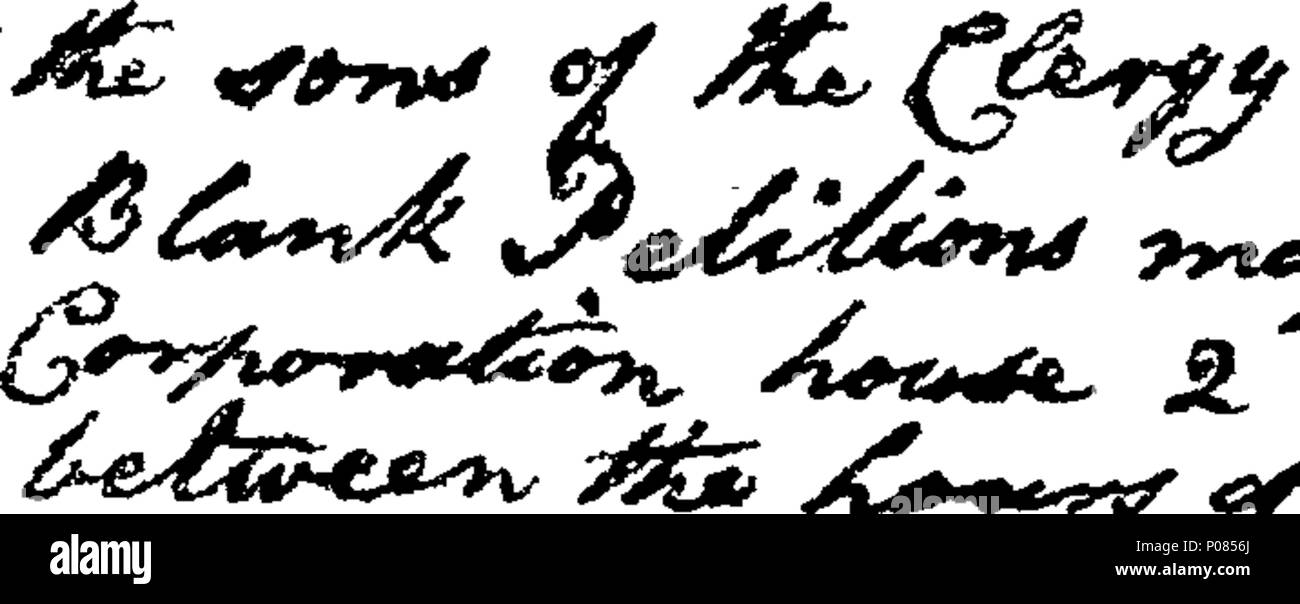 the sons of the Clergy
Blank Petitions ma
Corporation house 2
between the hours of
alamy
Image ID: P0856J
www.alamy.com